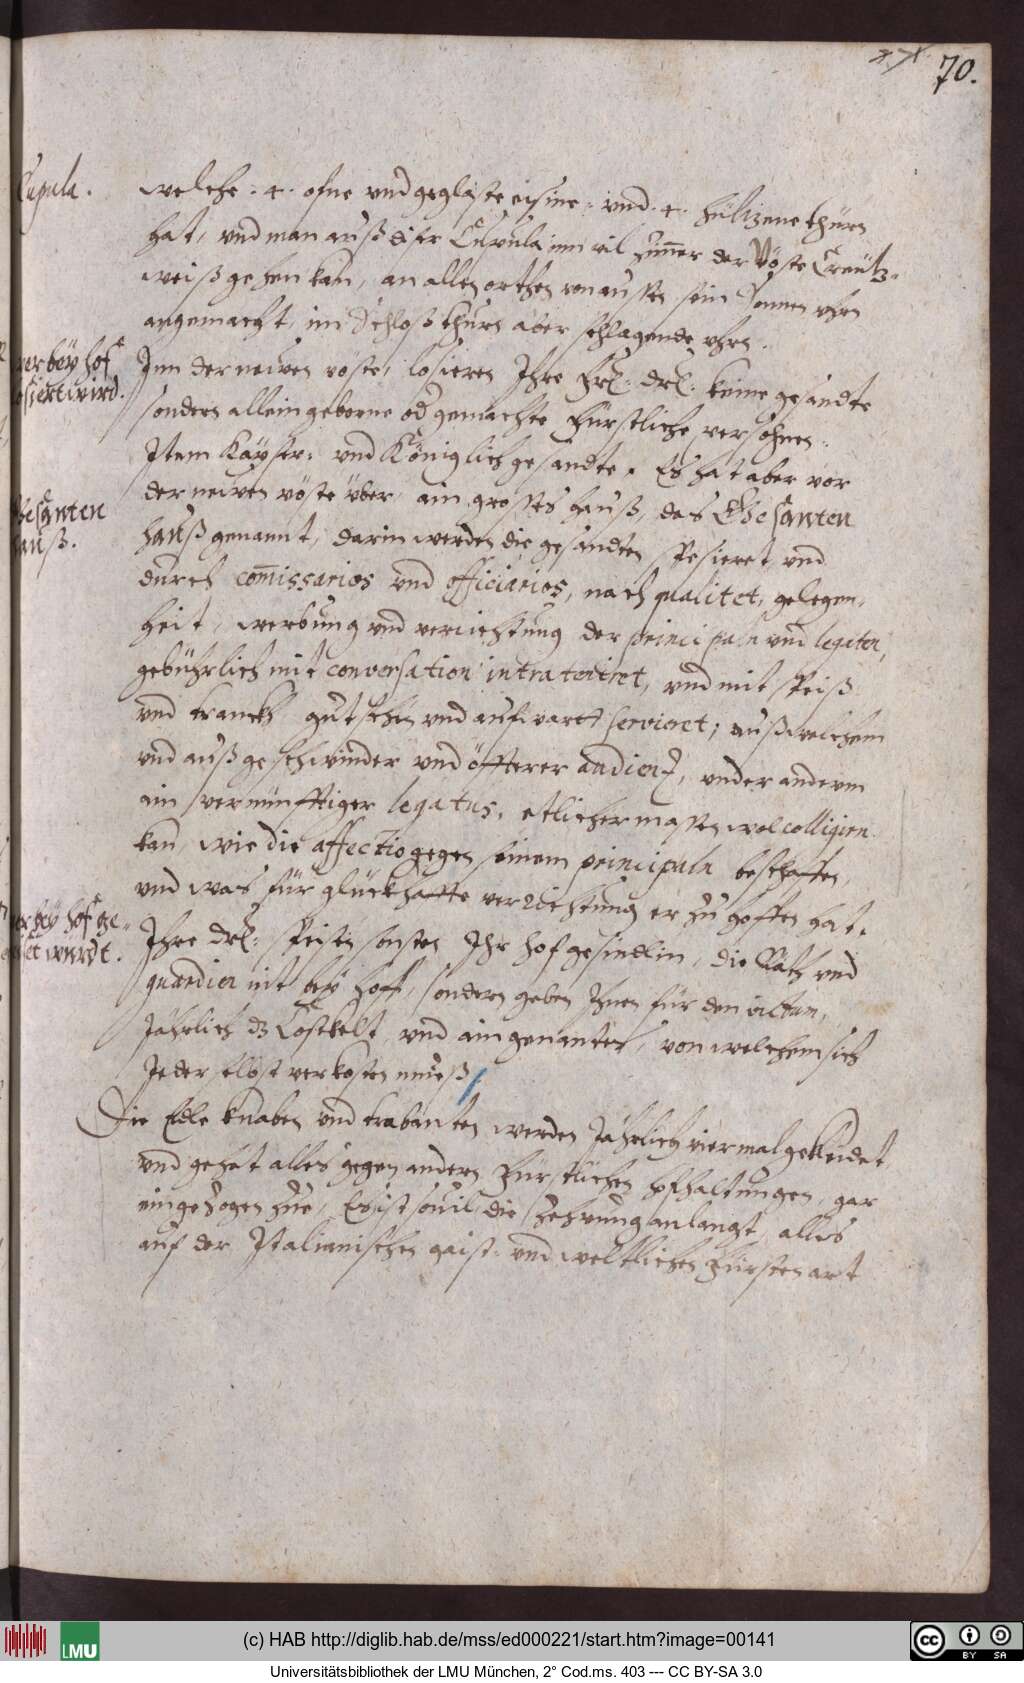 70.
Cupula.
welche .4. ofne und geglaste eisine: und .4. hültzene thüren
hat, und man auß diser Cupula inn vil Zimer der Vöste Creütz=
weiß gehen kan, an allen orthen von aussen sein Sonnen uhrn
angemacht, im Schloß thurn aber schlagende uhrn.
wer bey hof
losiert wird.
Inn der neuen vöste, losieren Ihre Frl: Drl: keine gesandte
sonders allein geborne od gemachte Fürstliche persohnen.
Item Kayser: und Königlich gesandte. Es hat aber vor
der neuen vöste über, ain grosses hauß, das Gesanten
Gesanten
hauß.
hauß genannt, darin werden die gesandten losieret, und
durch comissarios und officiarios, nach qualitet, gelegen=
heit, werbung und verrichtung der principaln und legaten,
gebührlich mit conversation intrateniret, und mit speiß
und tranckh, gutschen und aufwart servieret; auß welchem
und auß geschwinder und öffterer audienz, under anderm
ain vernünfftiger legatus, etlicher massen wol colligirn
kan, wie die affectio gegen seinem principaln beschaffen,
und was für glückhaffte verrichtung er zu hoffen hat.
wer bey hof ge=
speiset wurdt.
Ihre Drl: speisen sonsten Ihr hofgesindlin, die Räth und
guardien nit bey hoff, sondern geben Ihnen für den victum,
Jährlich dz Costgelt, und ain genantes, von welchem sich
Jeder selbst verkosten mueß.
Die Edle knaben und trabanten werden Jährlich viermal gekleidet,
und gehet alles gegen andern Fürstlichen hofhaltungen, gar
eingezogen zue, Es ist souil die Zehrung anlangt, alles
auf der Italianischen gaist: und weltlichen Fürsten art
(c) HAB http://diglib.hab.de/mss/ed000221/start.htm?image=00141
LMU
cc BY SA
Universitätsbibliothek der LMU München, 2° Cod.ms. 403 --- CC BY-SA 3.0